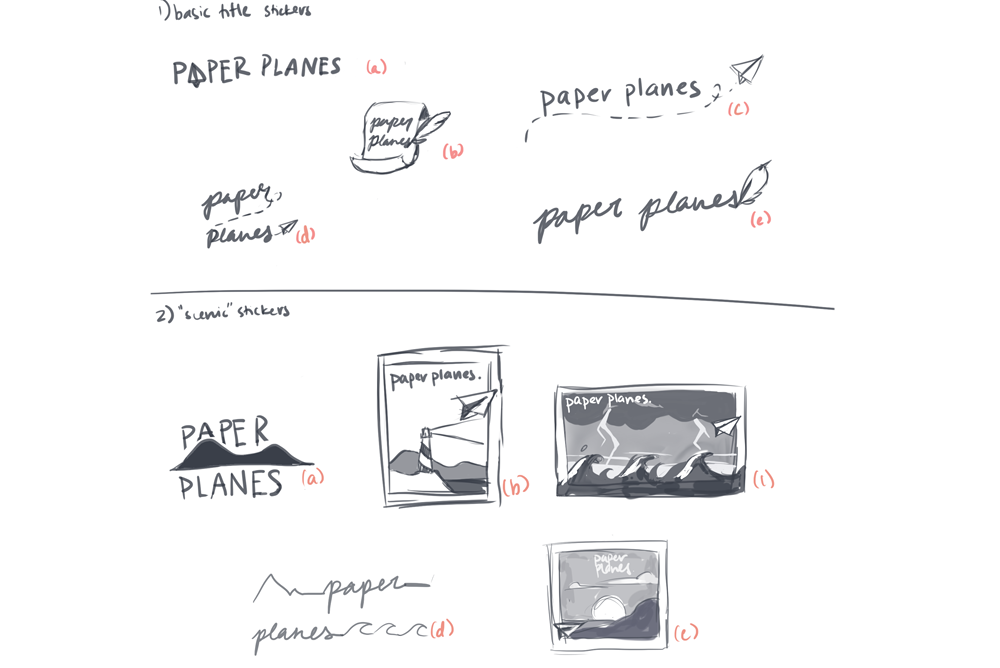 1) basic title stickers
PAPER PLANES (a)
paper planes (c)
paper
planes (b)
paper
planes (d)
paper planes (e)
2) "scenic" stickers
paper planes.
paper planes.
PAPER
PLANES (a)
(b)
(c)
paper
planes
paper
planes (d)
(e)